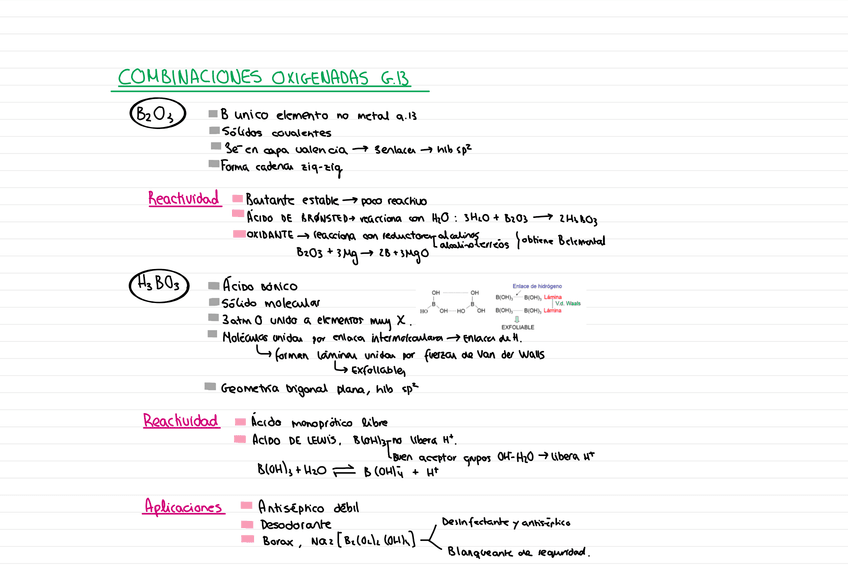 COMBINACIONES OXIGENADAS G.13
B2O3
B unico elemento no metal g.13
Sólidos covalentes
3e- en capa valencia → 3enlaces → hib sp²
Forma cadenas zig-zig
Reactividad
Bastante estable → poco reactivo
ÁCIDO DE BRØNSTED → reacciona con H2O : 3H2O + B2O3 → 2H3BO3
OXIDANTE → reacciona con reductores alcalinos
alcalinotérreos
obtiene B elemental
B2O3 + 3Mg → 2B + 3MgO
H3BO3
Ácido bórico
Sólido molecular
3 atm O unido a elementos muy X.
Moléculas unidas por enlaces intermoleculares → Enlaces de H.
↳ forman láminas unidas por fuerzas de Van der Walls
↳ Exfoliables
Geometría trigonal plana, hib sp²
Enlace de hidrógeno
OH OH
B(OH)3 B(OH)3 Lámina
B B
V.d. Waals
HO OH HO OH
B(OH)3 B(OH)3 Lámina
EXFOLIABLE
Reactividad
Ácido monoprótico libre
ÁCIDO DE LEWIS. B(OH)3 no libera H⁺.
Buen aceptor grupos OH-H2O → libera H⁺
B(OH)3 + H2O ⇌ B(OH)4⁻ + H⁺
Aplicaciones
Antiséptico débil
Desodorante
Borax, Na2[B2(O2)2(OH)4]
Desinfectante y antiséptico
Blanqueante de seguridad.